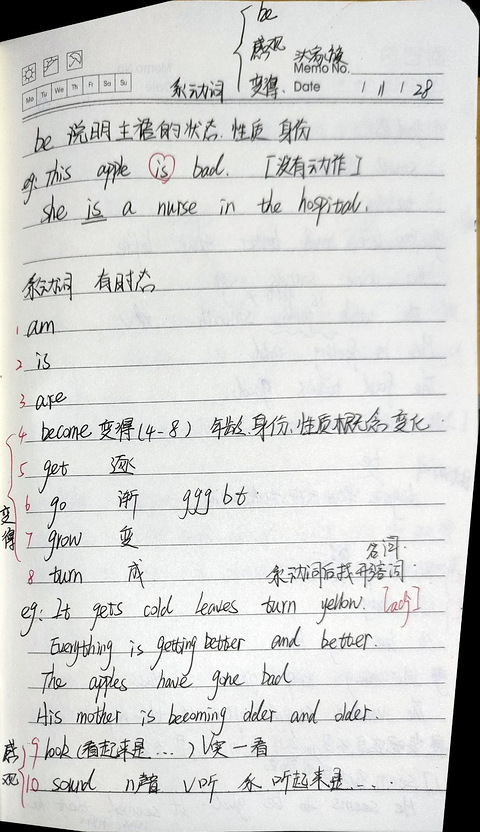 be
感观
系动词 变得.
Memo No.
Mo Tu We Th Fr Sa Su
Date 11 28
be 说明主语的状态. 性质 身份
eg: This apple is bad. [没有动作]
she is a nurse in the hospital.
系动词 有时态
1 am
2 is
3 are
4 become 变得(4-8) 年龄.身份.性质概念 变化.
5 get 逐
6 go 渐 ggg bt.
变得
7 grow 变
名词.
8 turn 成 系动词后找形容词.
eg: It gets cold leaves turn yellow. [adj]
Everything is getting better and better.
The apples have gone bad
His mother is becoming older and older.
感观
9 look (看起来是...) V实 一看
10 sound n声音 V听 系 听起来是....